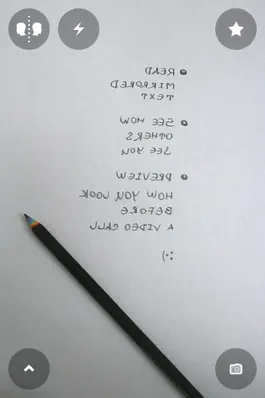 • READ
MIRRORED
TEXT
• SEE HOW
OTHERS
SEE YOU
• PREVIEW
HOW YOU LOOK
BEFORE
A VIDEO CALL
:-)